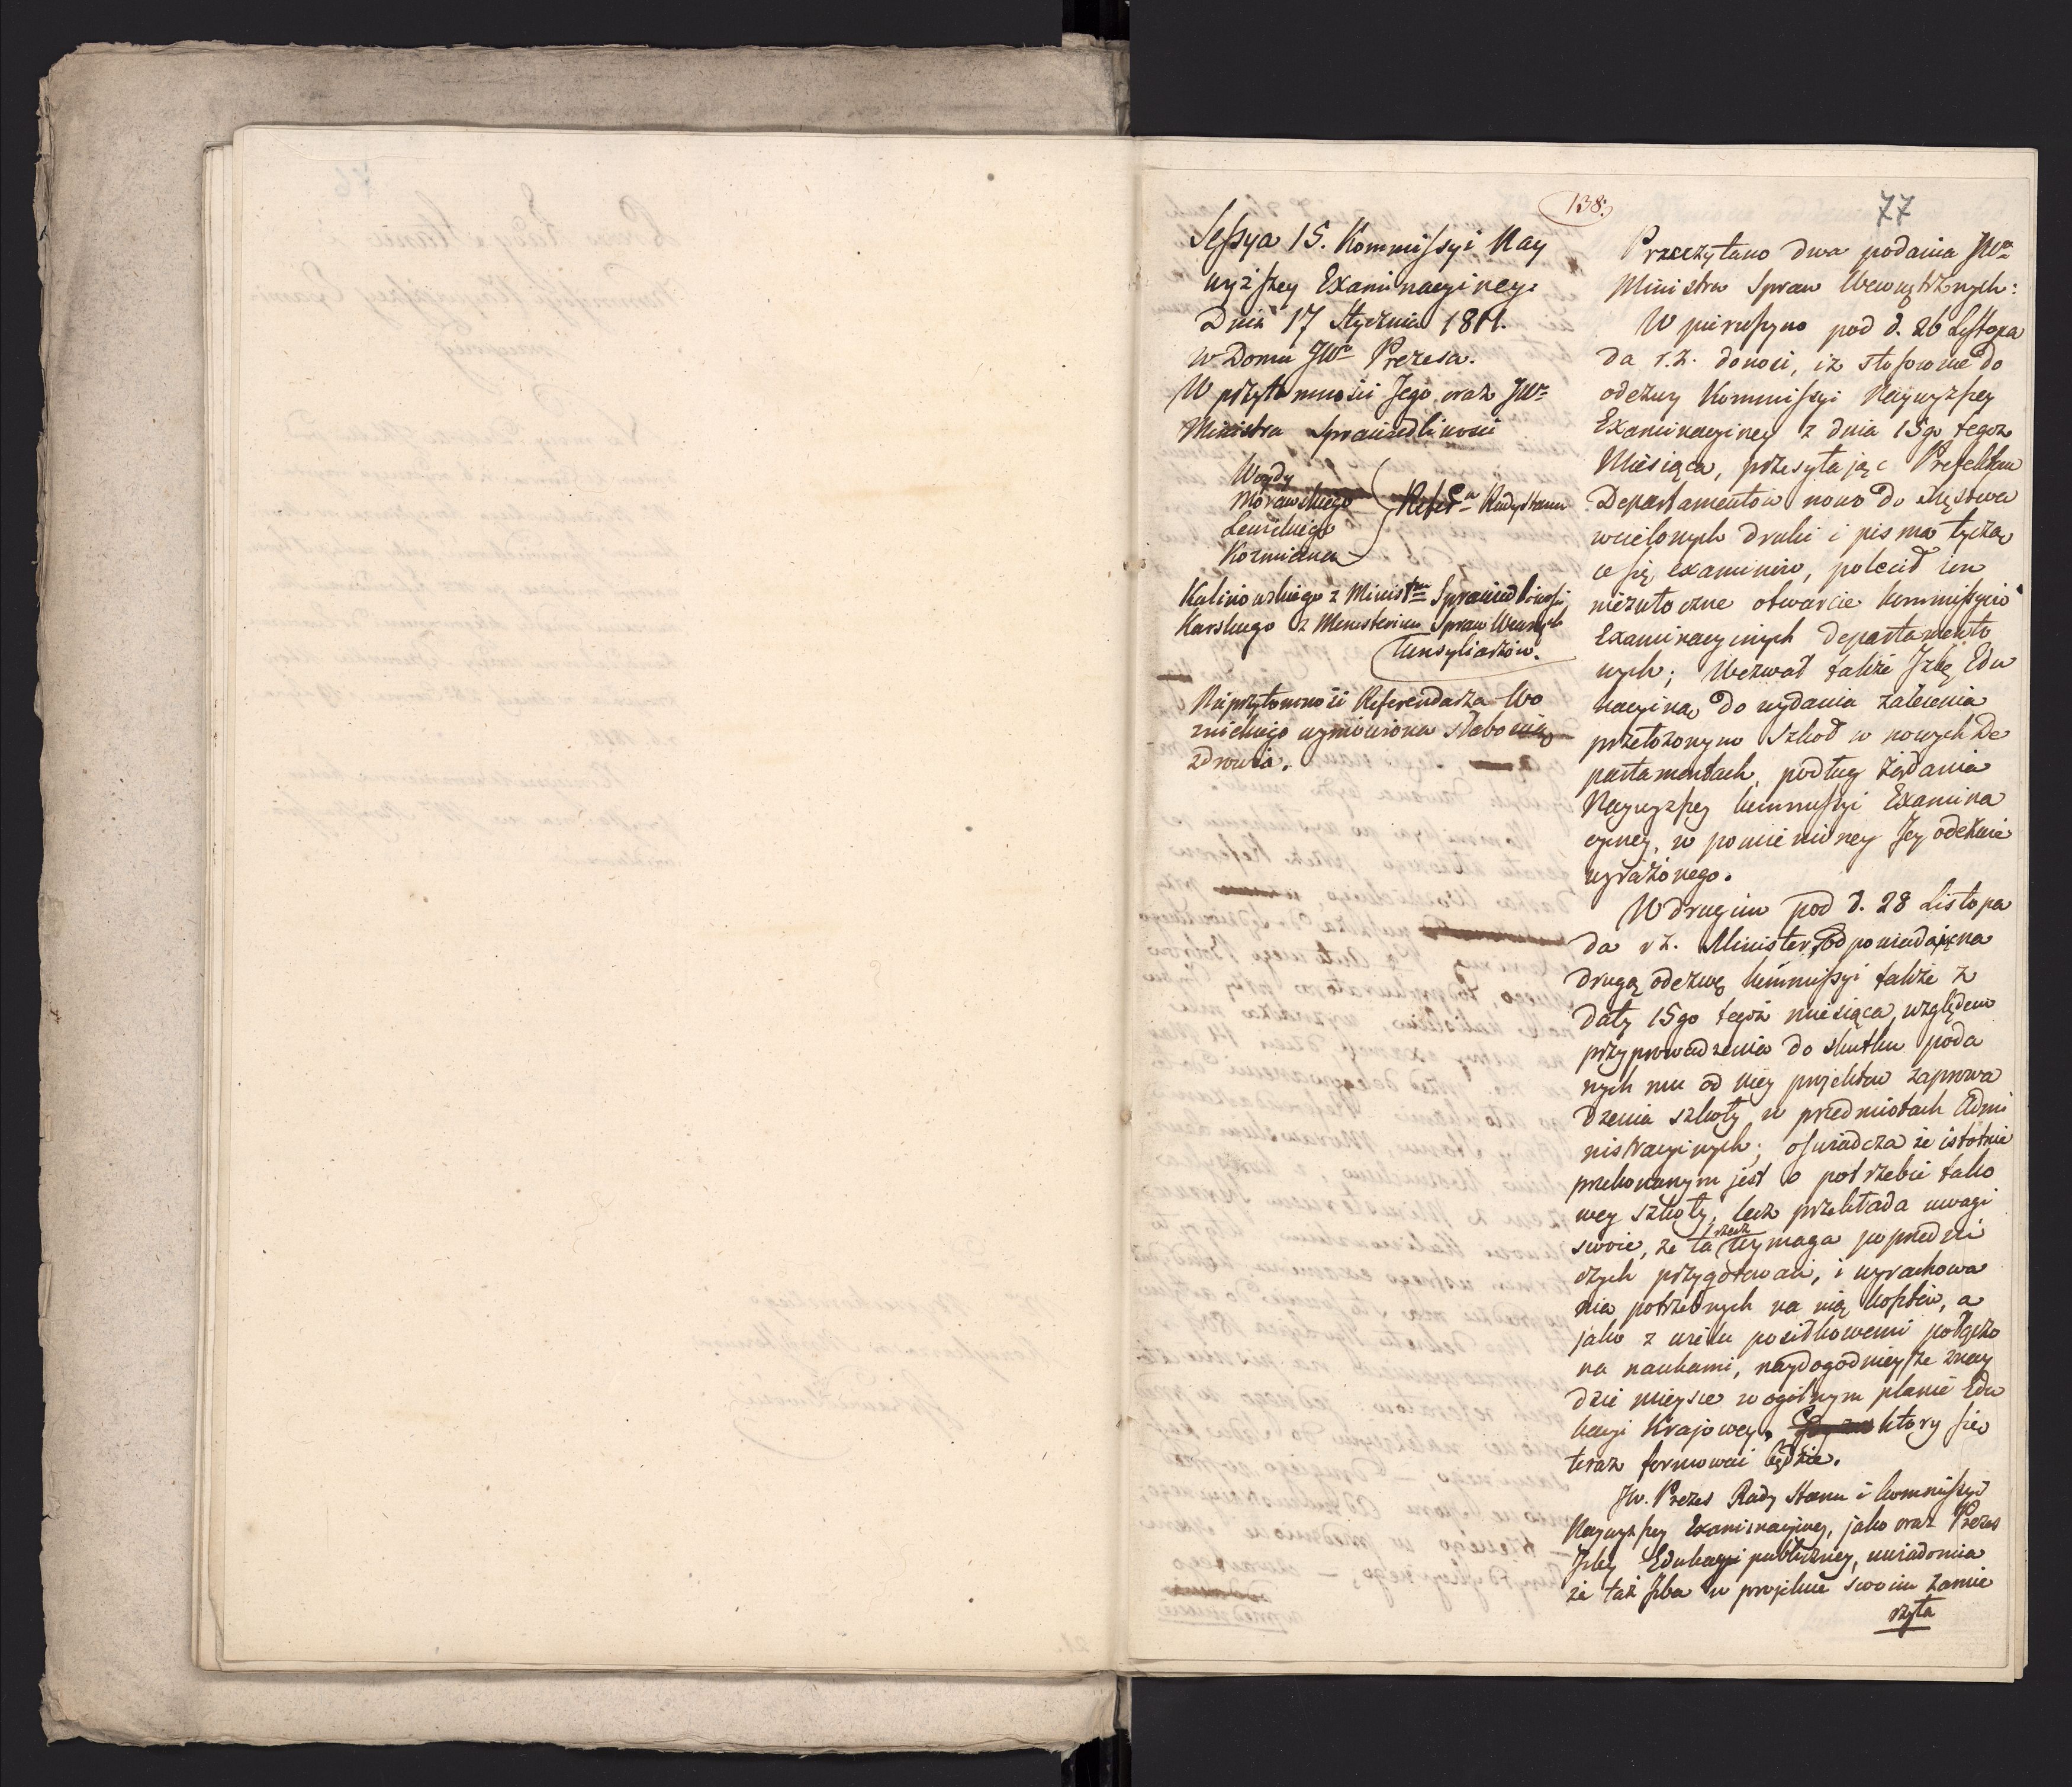 138.
77
Sessya 15. Kommissyi Nay
wyższey Examinacyiney.
Dnia 17 Stycznia 1811.
w Domu JWo Prezesa.
W przytomności Jego oraz JWo
Ministra Sprawiedliwości
Woydy
Morawskiego
Lewickiego
Kozmiana
Refer Rady Stanu
Kalinowskiego z Ministm Sprawiedliwości,
Karskiego z Ministerium Spraw Wewnych
Konsyliarzów.
Nieprzytomność Referendarza Wo
znickiego wymówiona słabością
zdrowia.
Przeczytano dwa podania JWo
Ministra Spraw Wewnętrznych:
W pierwszym pod d. 26 Listopa
da r.z. donosi, iż stosownie do
odezwy Kommissyi Naywyższey
Examinacyiney z dnia 15go tegoż
Miesiąca, przesyłając Prefektom
Departamentów nowo do Xięstwa
wcielonych druki i pisma tyczą
ce się examinów, polecił im
niezwłoczne otwarcie kommissyiów
Examinacyinych departamento
wych; Wezwał także Izbę Edu
kacyiną do wydania zalecenia
przełożonym Szkół w nowych De
partamentach, podług żądania
Naywyższey kommissyi Examina
cyiney, w pomienioney Jey odezwie
wyrażonego.
W drugim pod d. 28 Listopa
da r.z. Minister, odpowiadając na
drugą odezwę kommissyi także z
daty 15go tegoż miesiąca, względem
przyprowadzenia do skutku poda
nych mu od niey projektów zaprowa
dzenia szkoły w przedmiotach Admi
nistracyinych; oświadcza że istotnie
przekonanym jest o potrzebie tako
wey szkoły, lecz przekłada uwagi
swoie, że ta rzecz wymaga poprzedni
czych przygotowań, i wyrachowa
nia potrzebnych na nią kosztów, a
jako z wielu posiłkowemi połączo
na naukami, naydogodnieysze znay
dzie mieysce w ogólnym planie Edu
kacyi Krajowey, który się
teraz formować będzie.
JW. Prezes Rady Stanu i kommissyi
Naywyższey Examinacyiney, jako oraz Prezes
Izby Edukacyi publiczney, uwiadomia
że taż Izba w projekcie swoim zamie
rzyła